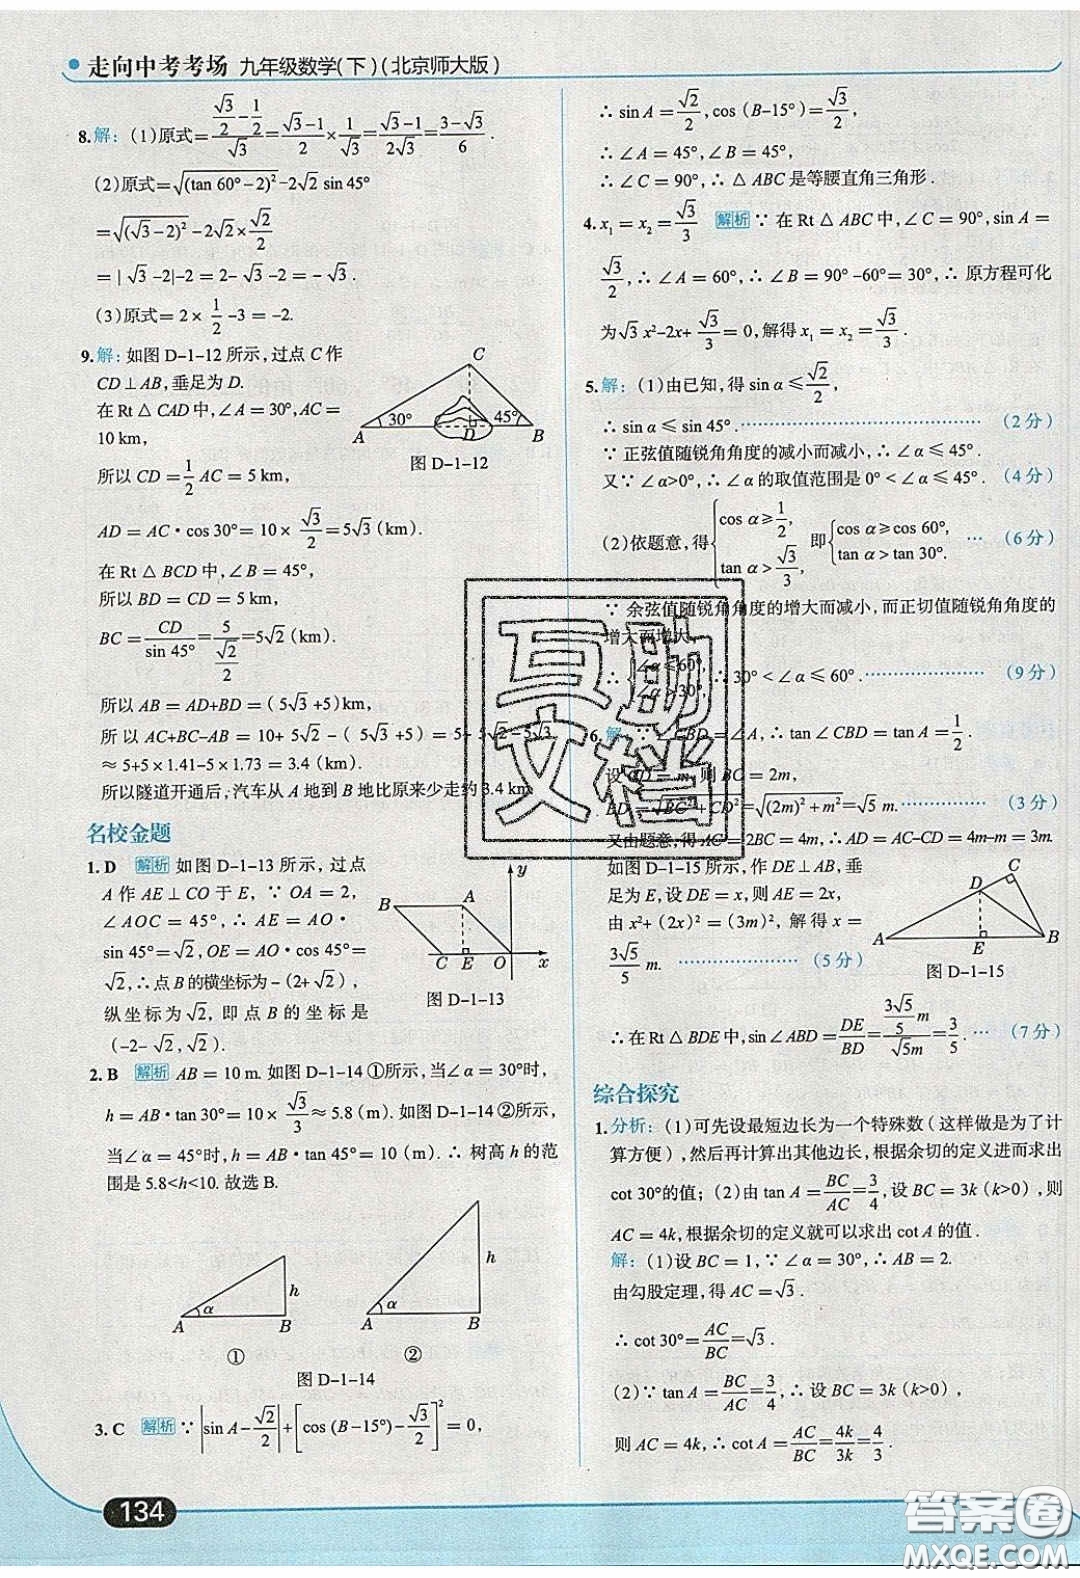 走向中考考场 九年级数学(下)(北京师大版)
8.解: (1)原式=(√3/2-1/2)/√3=(√3-1)/2×1/√3=(√3-1)/(2√3)=(3-√3)/6 .
(2)原式=√((tan 60°-2)²)-2√2 sin 45°
=√((√3-2)²)-2√2×√2/2
=|√3-2|-2=2-√3-2=-√3 .
(3)原式=2×1/2-3=-2.
9.解: 如图 D-1-12 所示, 过点 C 作
CD⊥AB, 垂足为 D.
在 Rt△CAD 中, ∠A=30°, AC=
10 km,
所以 CD=1/2 AC=5 km,
AD=AC·cos 30°=10×√3/2=5√3(km).
在 Rt△BCD 中, ∠B=45°,
所以 BD=CD=5 km,
BC=CD/sin 45°=5/(√2/2)=5√2(km).
所以 AB=AD+BD=(5√3+5)km,
所以 AC+BC-AB=10+5√2-(5√3+5)=5+5√2-5√3
≈5+5×1.41-5×1.73=3.4(km).
所以隧道开通后, 汽车从 A 地到 B 地比原来少走约 3.4 km.
C
30°
45°
A
D
B
图 D-1-12
名校金题
1. D 解析 如图 D-1-13 所示, 过点
A 作 AE⊥CO 于 E, ∵ OA=2,
∠AOC=45°, ∴ AE=AO·
sin 45°=√2, OE=AO·cos 45°=
√2, ∴ 点 B 的横坐标为-(2+√2),
纵坐标为√2, 即点 B 的坐标是
(-2-√2, √2).
y
B
A
C
E
O
x
图 D-1-13
2. B 解析 AB=10 m. 如图 D-1-14 ①所示, 当∠α=30°时,
h=AB·tan 30°=10×√3/3≈5.8(m). 如图 D-1-14 ②所示,
当∠α=45°时, h=AB·tan 45°=10(m). ∴ 树高 h 的范
围是 5.8<h<10. 故选 B.
h
α
A
B
①
h
α
A
B
②
图 D-1-14
3. C 解析 ∵ |sin A-√2/2|+[cos(B-15°)-√3/2]²=0,
∴ sin A=√2/2, cos(B-15°)=√3/2,
∴ ∠A=45°, ∠B=45°,
∴ ∠C=90°, ∴ △ABC 是等腰直角三角形.
4. x₁=x₂=√3/3 解析 ∵ 在 Rt△ABC 中, ∠C=90°, sin A=
√3/2, ∴ ∠A=60°, ∴ ∠B=90°-60°=30°, ∴ 原方程可化
为√3 x²-2x+√3/3=0, 解得 x₁=x₂=√3/3 .
5.解: (1)由已知, 得 sin α≤√2/2,
∴ sin α≤sin 45°. (2 分)
∵ 正弦值随锐角角度的减小而减小, ∴ ∠α≤45°.
又∵ ∠α>0°, ∴ ∠α 的取值范围是 0°<∠α≤45°. (4 分)
(2)依题意, 得{cos α≥1/2, tan α>√3/3, 即{cos α≥cos 60°, tan α>tan 30°. … (6 分)
∵ 余弦值随锐角角度的增大而减小, 而正切值随锐角角度的
增大而增大,
∴ {∠α≤60°, ∠α>30°, ∴ 30°<∠α≤60°. (9 分)
6.解: ∵ ∠CBD=∠A, ∴ tan∠CBD=tan A=1/2.
设 CD=m, 则 BC=2m,
BD=√(BC²+CD²)=√((2m)²+m²)=√5 m. (3 分)
又由题意, 得 AC=2BC=4m, ∴ AD=AC-CD=4m-m=3m.
如图 D-1-15 所示, 作 DE⊥AB, 垂
足为 E, 设 DE=x, 则 AE=2x,
由 x²+(2x)²=(3m)², 解得 x=
3√5/5 m. (5 分)
C
D
A
E
B
图 D-1-15
∴ 在 Rt△BDE 中, sin∠ABD=DE/BD=(3√5/5 m)/(√5m)=3/5. … (7 分)
综合探究
1.分析: (1)可先设最短边长为一个特殊数(这样做是为了计
算方便), 然后再计算出其他边长, 根据余切的定义进而求出
cot 30°的值; (2)由 tan A=BC/AC=3/4, 设 BC=3k(k>0), 则
AC=4k, 根据余切的定义就可以求出 cot A 的值.
解: (1)设 BC=1, ∵ ∠α=30°, ∴ AB=2.
由勾股定理, 得 AC=√3 .
∴ cot 30°=AC/BC=√3 .
(2)∵ tan A=BC/AC=3/4, ∴ 设 BC=3k(k>0),
则 AC=4k, ∴ cot A=AC/BC=4k/3k=4/3 .
134
互助
文档
答案圈
MXQE.COM